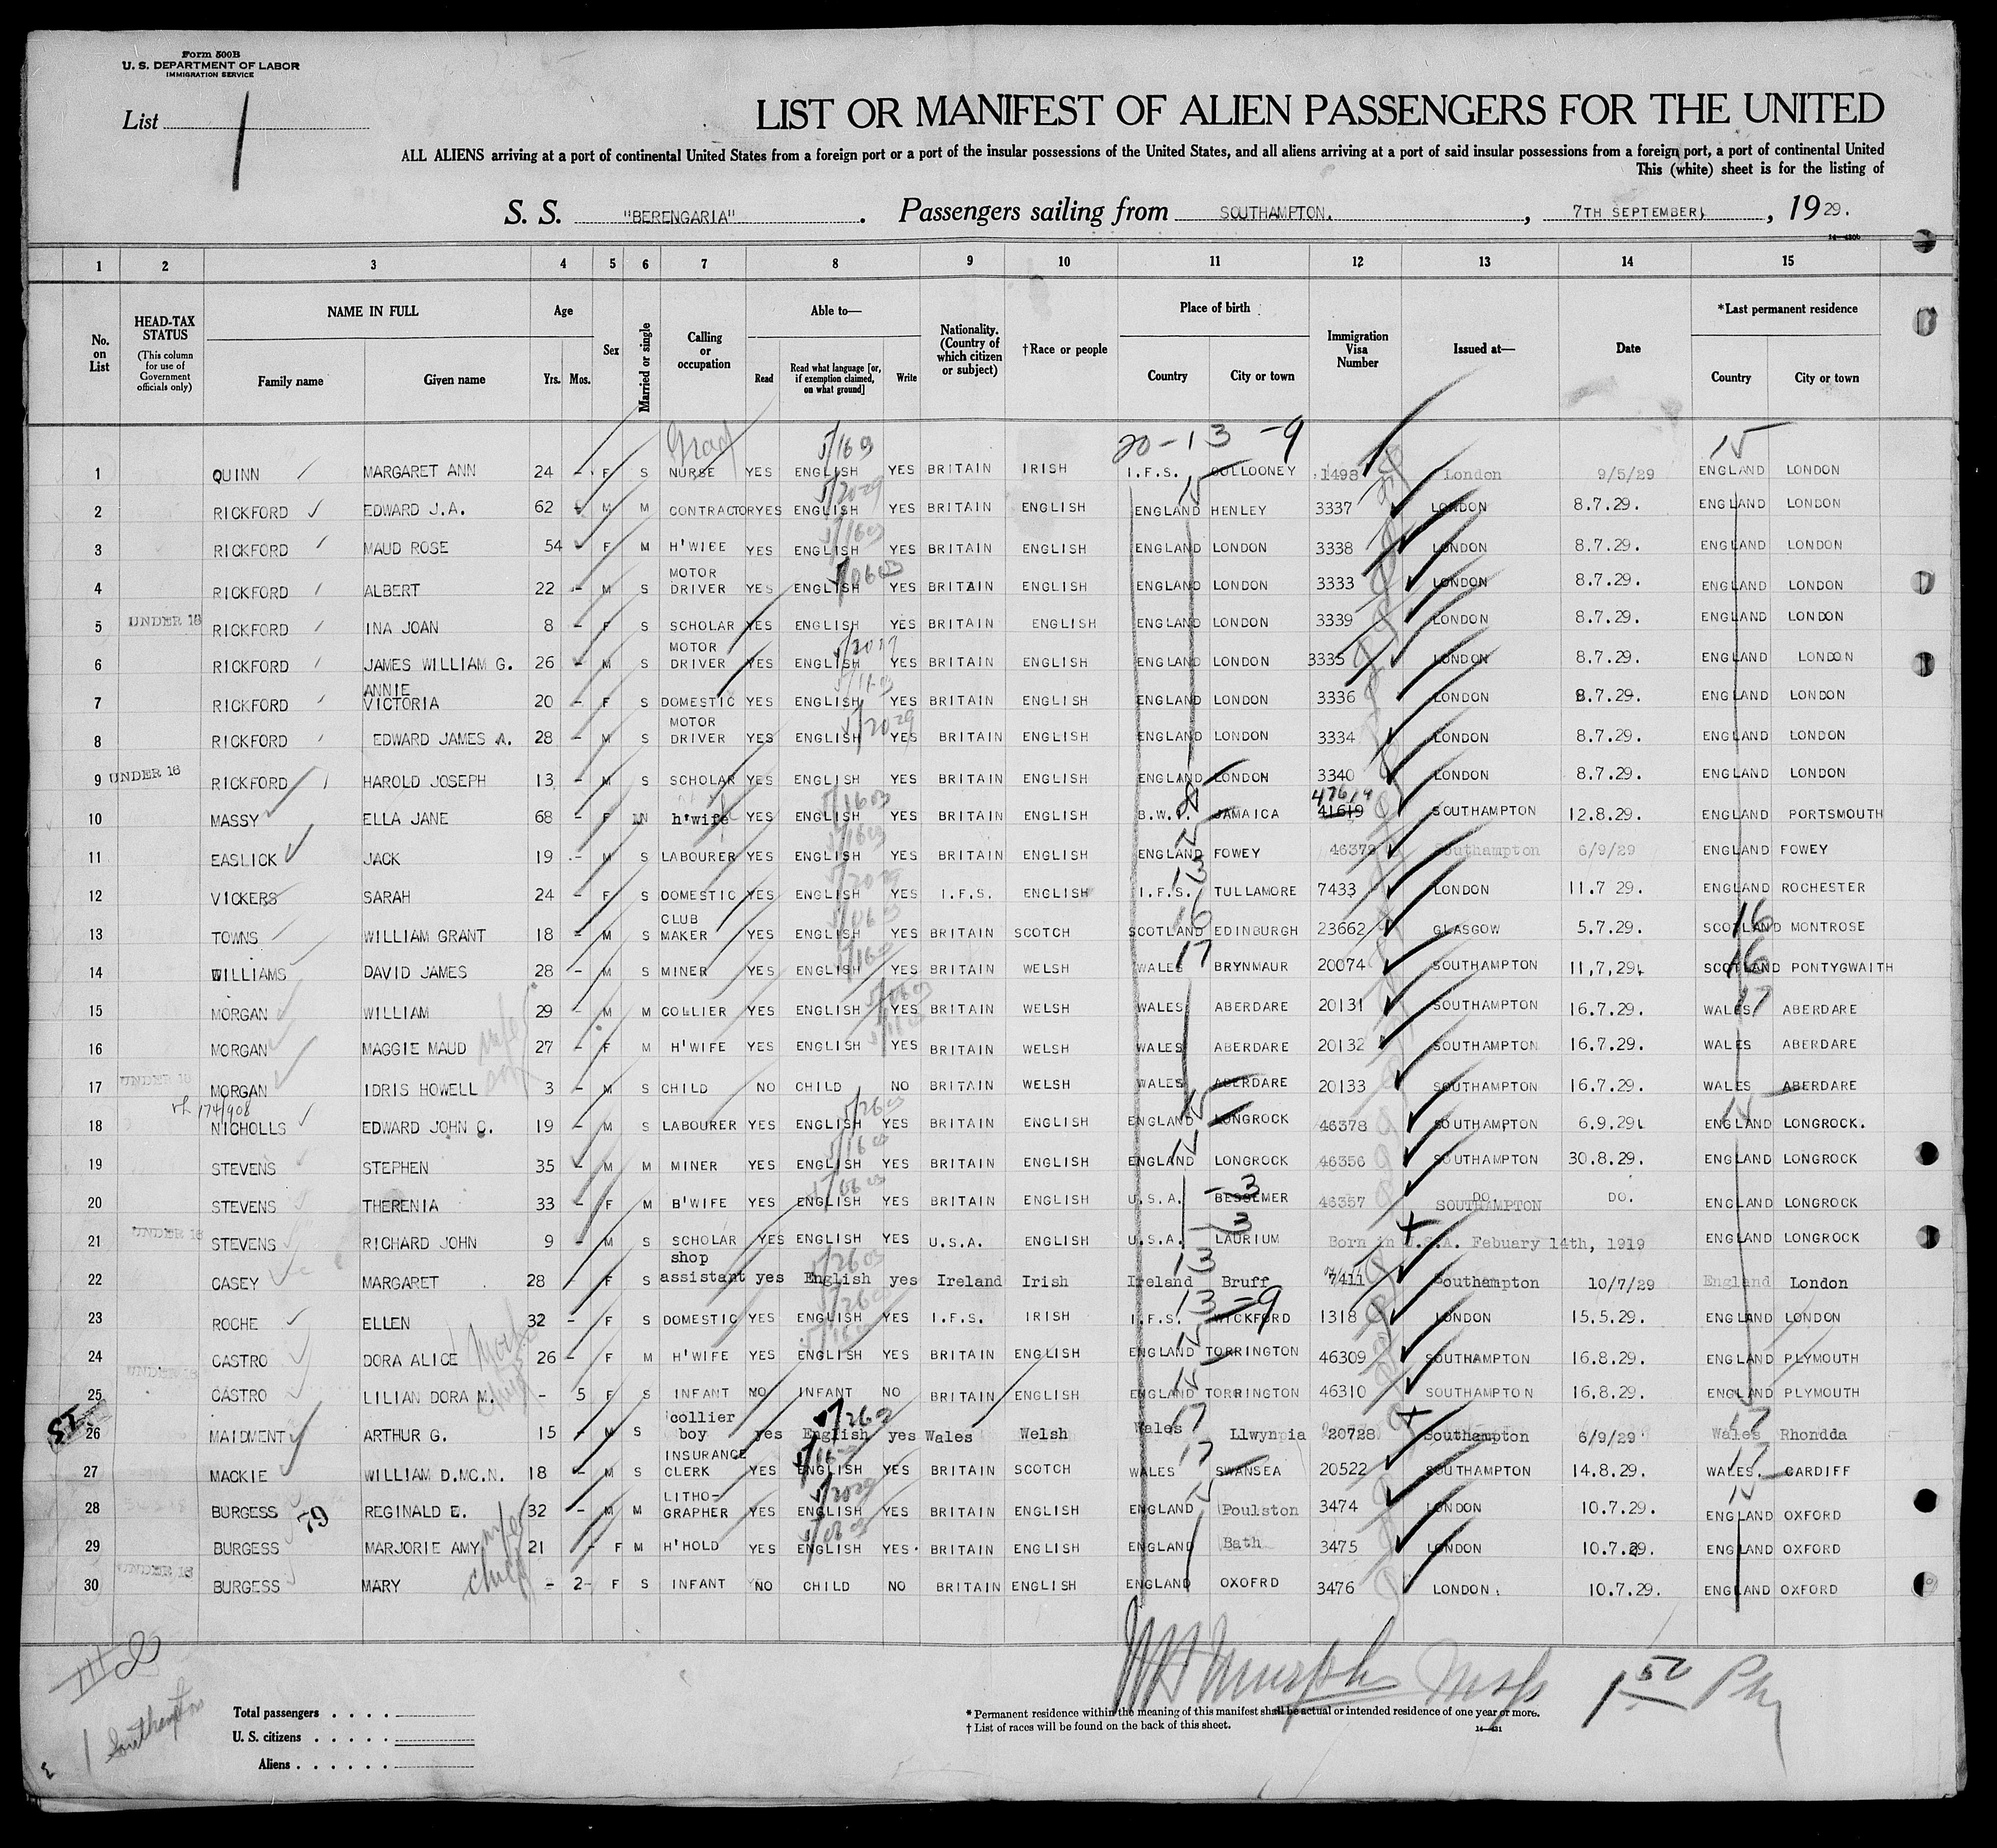 Form 500B
U. S. DEPARTMENT OF LABOR
IMMIGRATION SERVICE
List 1
LIST OR MANIFEST OF ALIEN PASSENGERS FOR THE UNITED
ALL ALIENS arriving at a port of continental United States from a foreign port or a port of the insular possessions of the United States, and all aliens arriving at a port of said insular possessions from a foreign port, a port of continental United
This (white) sheet is for the listing of
S. S. "BERENGARIA". Passengers sailing from SOUTHAMPTON. , 7TH SEPTEMBER, , 19 29.
14—430b
1 2 3 4 5 6 7 8 9 10 11 12 13 14 15
No. on List
HEAD-TAX STATUS (This column for use of Government officials only)
NAME IN FULL
Family name Given name
Age Yrs. Mos.
Sex
Married or single
Calling or occupation
Able to—
Read Read what language [or, if exemption claimed, on what ground] Write
Nationality. (Country of which citizen or subject)
†Race or people
Place of birth
Country City or town
Immigration Visa Number
Issued at—
Date
*Last permanent residence
Country City or town
Grad 5/16 03 20-13-9 15
1 QUINN MARGARET ANN 24 - F S NURSE YES ENGLISH YES BRITAIN IRISH I.F.S. COLLOONEY 1498 London 9/5/29 ENGLAND LONDON
2 RICKFORD EDWARD J.A. 62 - M M CONTRACTOR YES ENGLISH YES BRITAIN ENGLISH ENGLAND HENLEY 3337 LONDON 8.7.29. ENGLAND LONDON
3 RICKFORD MAUD ROSE 54 - F M H'WIFE YES ENGLISH YES BRITAIN ENGLISH ENGLAND LONDON 3338 LONDON 8.7.29. ENGLAND LONDON
4 RICKFORD ALBERT 22 - M S MOTOR DRIVER YES ENGLISH YES BRITAIN ENGLISH ENGLAND LONDON 3333 LONDON 8.7.29. ENGLAND LONDON
5 UNDER 16 RICKFORD INA JOAN 8 - F S SCHOLAR YES ENGLISH YES BRITAIN ENGLISH ENGLAND LONDON 3339 LONDON 8.7.29. ENGLAND LONDON
6 RICKFORD JAMES WILLIAM G. 26 - M S MOTOR DRIVER YES ENGLISH YES BRITAIN ENGLISH ENGLAND LONDON 3335 LONDON 8.7.29. ENGLAND LONDON
7 RICKFORD ANNIE VICTORIA 20 - F S DOMESTIC YES ENGLISH YES BRITAIN ENGLISH ENGLAND LONDON 3336 LONDON 8.7.29. ENGLAND LONDON
8 RICKFORD EDWARD JAMES A. 28 - M S MOTOR DRIVER YES ENGLISH YES BRITAIN ENGLISH ENGLAND LONDON 3334 LONDON 8.7.29. ENGLAND LONDON
9 UNDER 16 RICKFORD HAROLD JOSEPH 13 - M S SCHOLAR YES ENGLISH YES BRITAIN ENGLISH ENGLAND LONDON 3340 LONDON 8.7.29. ENGLAND LONDON
10 MASSY ELLA JANE 68 - F h'wife YES ENGLISH YES BRITAIN ENGLISH B.W.I. JAMAICA 47614 41619 SOUTHAMPTON 12.8.29. ENGLAND PORTSMOUTH
11 EASLICK JACK 19 - M S LABOURER YES ENGLISH YES BRITAIN ENGLISH ENGLAND FOWEY 46379 Southampton 6/9/29 ENGLAND FOWEY
12 VICKERS SARAH 24 - F S DOMESTIC YES ENGLISH YES I.F.S. ENGLISH I.F.S. TULLAMORE 7433 LONDON 11.7 29. ENGLAND ROCHESTER
13 TOWNS WILLIAM GRANT 18 - M S CLUB MAKER YES ENGLISH YES BRITAIN SCOTCH SCOTLAND EDINBURGH 23662 GLASGOW 5.7.29. SCOTLAND MONTROSE
14 WILLIAMS DAVID JAMES 28 - M S MINER YES ENGLISH YES BRITAIN WELSH WALES BRYNMAUR 20074 SOUTHAMPTON 11,7,29. SCOTLAND PONTYGWAITH
15 MORGAN WILLIAM 29 - M M COLLIER YES ENGLISH YES BRITAIN WELSH WALES ABERDARE 20131 SOUTHAMPTON 16.7.29. WALES ABERDARE
16 MORGAN MAGGIE MAUD wife 27 - F M H'WIFE YES ENGLISH YES BRITAIN WELSH WALES ABERDARE 20132 SOUTHAMPTON 16.7.29. WALES ABERDARE
17 UNDER 16 MORGAN IDRIS HOWELL son 3 - M S CHILD NO CHILD NO BRITAIN WELSH WALES ABERDARE 20133 SOUTHAMPTON 16.7.29. WALES ABERDARE
174/908
18 NICHOLLS EDWARD JOHN C. 19 - M S LABOURER YES ENGLISH YES BRITAIN ENGLISH ENGLAND LONGROCK 46378 SOUTHAMPTON 6.9.29. ENGLAND LONGROCK.
19 STEVENS STEPHEN 35 - M M MINER YES ENGLISH YES BRITAIN ENGLISH ENGLAND LONGROCK 46356 SOUTHAMPTON 30.8.29. ENGLAND LONGROCK
20 STEVENS THERENIA 33 - F M B'WIFE YES ENGLISH YES BRITAIN ENGLISH U.S.A. BESSEMER 46357 DO. SOUTHAMPTON DO. ENGLAND LONGROCK
21 UNDER 16 STEVENS RICHARD JOHN 9 - M S SCHOLAR YES ENGLISH YES U.S.A. ENGLISH U.S.A. LAURIUM Born in U.S.A. Febuary 14th, 1919 ENGLAND LONGROCK
22 CASEY MARGARET 28 F S shop assistant yes English yes Ireland Irish Ireland Bruff 7411 Southampton 10/7/29 England London
23 ROCHE ELLEN 32 - F S DOMESTIC YES ENGLISH YES I.F.S. IRISH I.F.S. WICKFORD 1318 LONDON 15.5.29. ENGLAND LONDON
24 CASTRO DORA ALICE 26 - F M H'WIFE YES ENGLISH YES BRITAIN ENGLISH ENGLAND TORRINGTON 46309 SOUTHAMPTON 16.8.29. ENGLAND PLYMOUTH
25 UNDER 16 CASTRO LILIAN DORA M. - 5 F S INFANT NO INFANT NO BRITAIN ENGLISH ENGLAND TORRINGTON 46310 SOUTHAMPTON 16.8.29. ENGLAND PLYMOUTH
26 MAIDMENT ARTHUR G. 15 - M S collier boy yes English yes Wales Welsh Wales Llwynpia 20728 Southampton 6/9/29 Wales Rhondda
27 MACKIE WILLIAM D.MC.N. 18 - M S INSURANCE CLERK YES ENGLISH YES BRITAIN SCOTCH WALES SWANSEA 20522 SOUTHAMPTON 14.8.29. WALES. CARDIFF
28 BURGESS 79 REGINALD E. 32 - M M LITHO- GRAPHER YES ENGLISH YES BRITAIN ENGLISH ENGLAND Poulston 3474 LONDON 10.7.29. ENGLAND OXFORD
29 BURGESS MARJORIE AMY wife 21 - F M H'HOLD YES ENGLISH YES. BRITAIN ENGLISH ENGLAND Bath 3475 LONDON 10.7.29. ENGLAND OXFORD
30 UNDER 16 BURGESS MARY child - 2- F S INFANT NO CHILD NO BRITAIN ENGLISH ENGLAND OXOFRD 3476 LONDON. 10.7.29. ENGLAND OXFORD
1 Southampton
Total passengers . . . .
U. S. citizens . . . . .
Aliens . . . . . .
* Permanent residence within the meaning of this manifest shall be actual or intended residence of one year or more.
† List of races will be found on the back of this sheet.
14—431